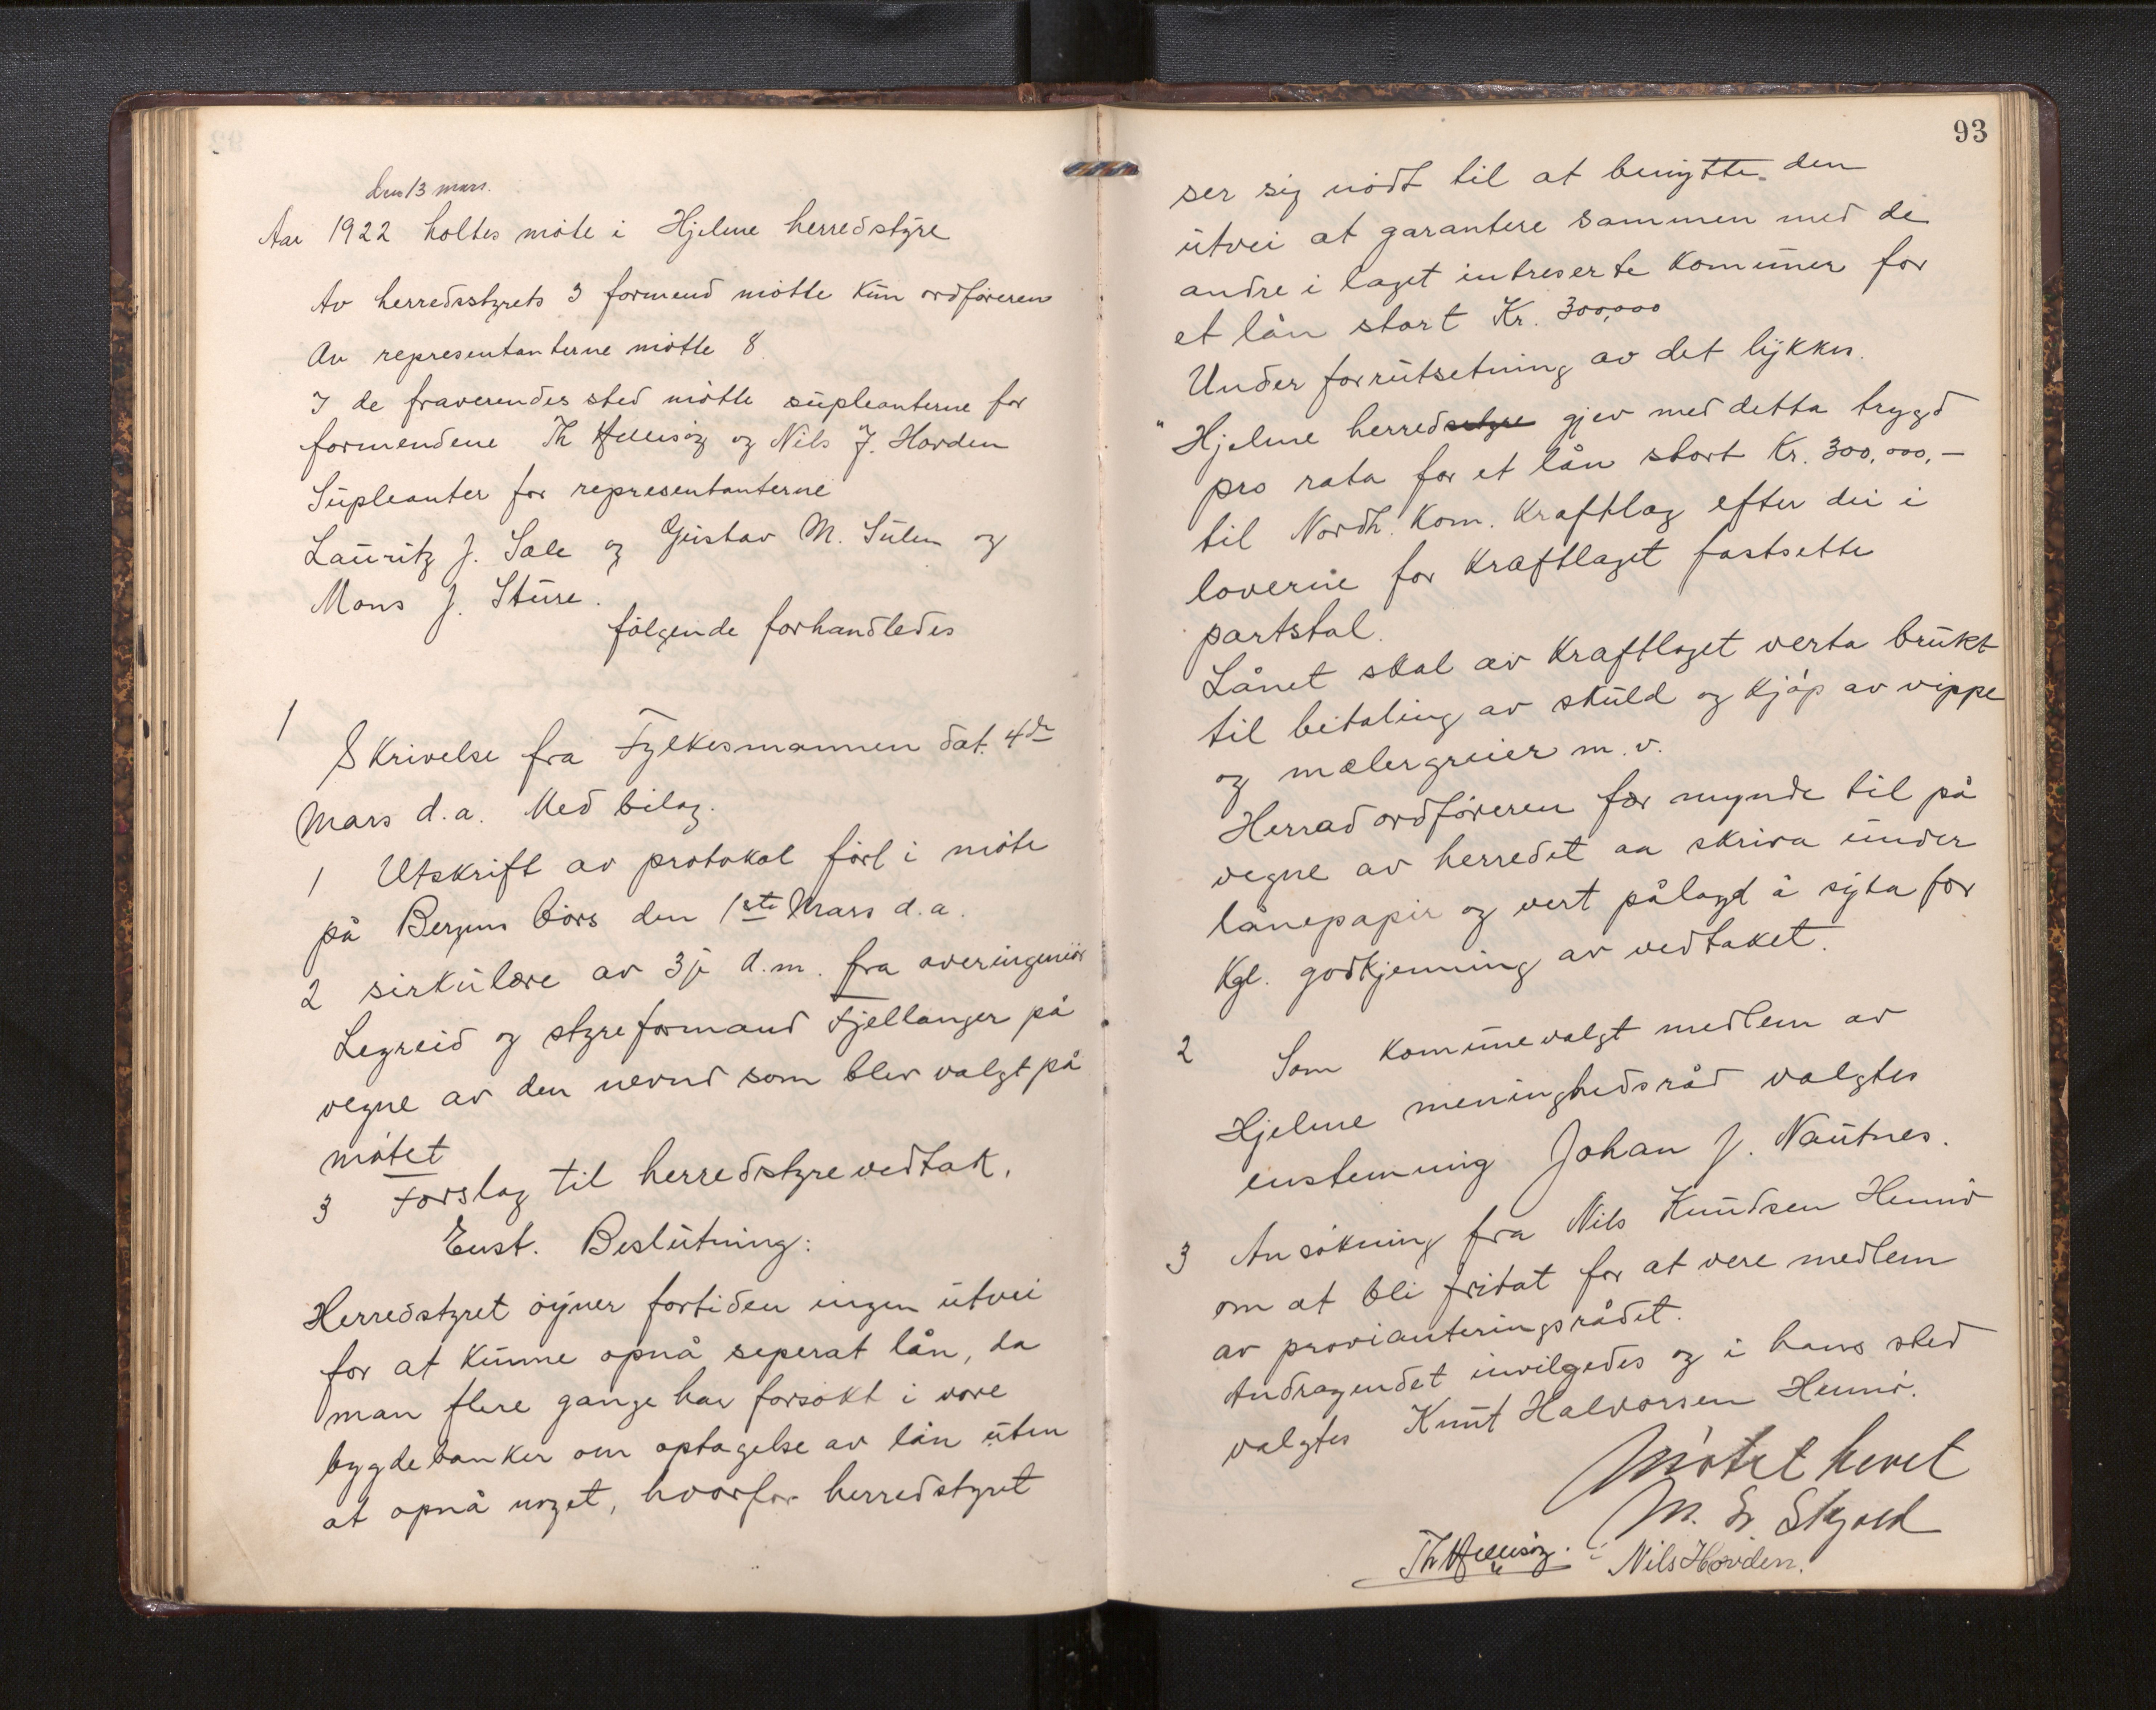 den 13 mars.
Aar 1922 holtes möte i Hjelme herredstyre
Av herredsstyrets 3 formend mötte kun ordföreren
Av representanterne mötte 8
I de fraverendes sted mötte supleanterne for
formendene Th Hellisöy og Nils J. Horden
Supleanter for representanterne
Lauritz J. Sæle og Gustav M. Sulen og
Mons J. Sture.
fölgende forhandledes
1
Skrivelse fra Fylkesmannen dat. 4de
Mars d.a. Med bilag.
1 Utskrift av protokol fört i möte
på Bergens börs den 1ste Mars d.a.
2 sirkulære av 3je d.m. fra overingeniör
Legreid og styreformand Fjellanger på
vegne av den nevnd som blev valgt på
mötet
3 Forslag til herredstyrevedtak.
Enst. Beslutning:
Herredstyret öyner fortiden ingen utvei
for at kunne opnå seperat lån, da
man flere gange har forsökt i vore
bygdebanker om optagelse av lån uten
at opnå noget, hvorfor herredstyret
93
ser sig nödt til at benytte den
utvei at garantere sammen med de
andre i laget intreserte komuner for
et lån stort Kr. 300,000
Under forrutsetning av det lykkes.
"Hjelme herredsstyre gjev med detta trygd
pro rata for et lån stort Kr. 300,000,-
til Nordh. Kom. Kraftlag efter dei i
loverne for kraftlaget fastsette
partstal.
Lånet skal av kraftlaget verta brukt
til beitaling av skuld og kjöp av vippe
og mælergreier m.v.
Herradordföreren fær mynde til på
vegne av herredet aa skriva under
lånepapir og vert pålagd å syta for
Kgl. godkjenning av vedtaket.
2 Som komunevalgt medlem av
Hjelme meninghedsråd valgtes
enstemmig Johan J. Nautnes.
3 Ansökning fra Nils Knudsen Hennö
om at bli fritat for at vere medlem
av provianteringsrådet.
Andragendet invilgedes og i hans sted
valgtes Knut Halvorsen Hennö.
Mötet hevet
M. Sr. Skjold
Th Hellisöy. Nils Horden.